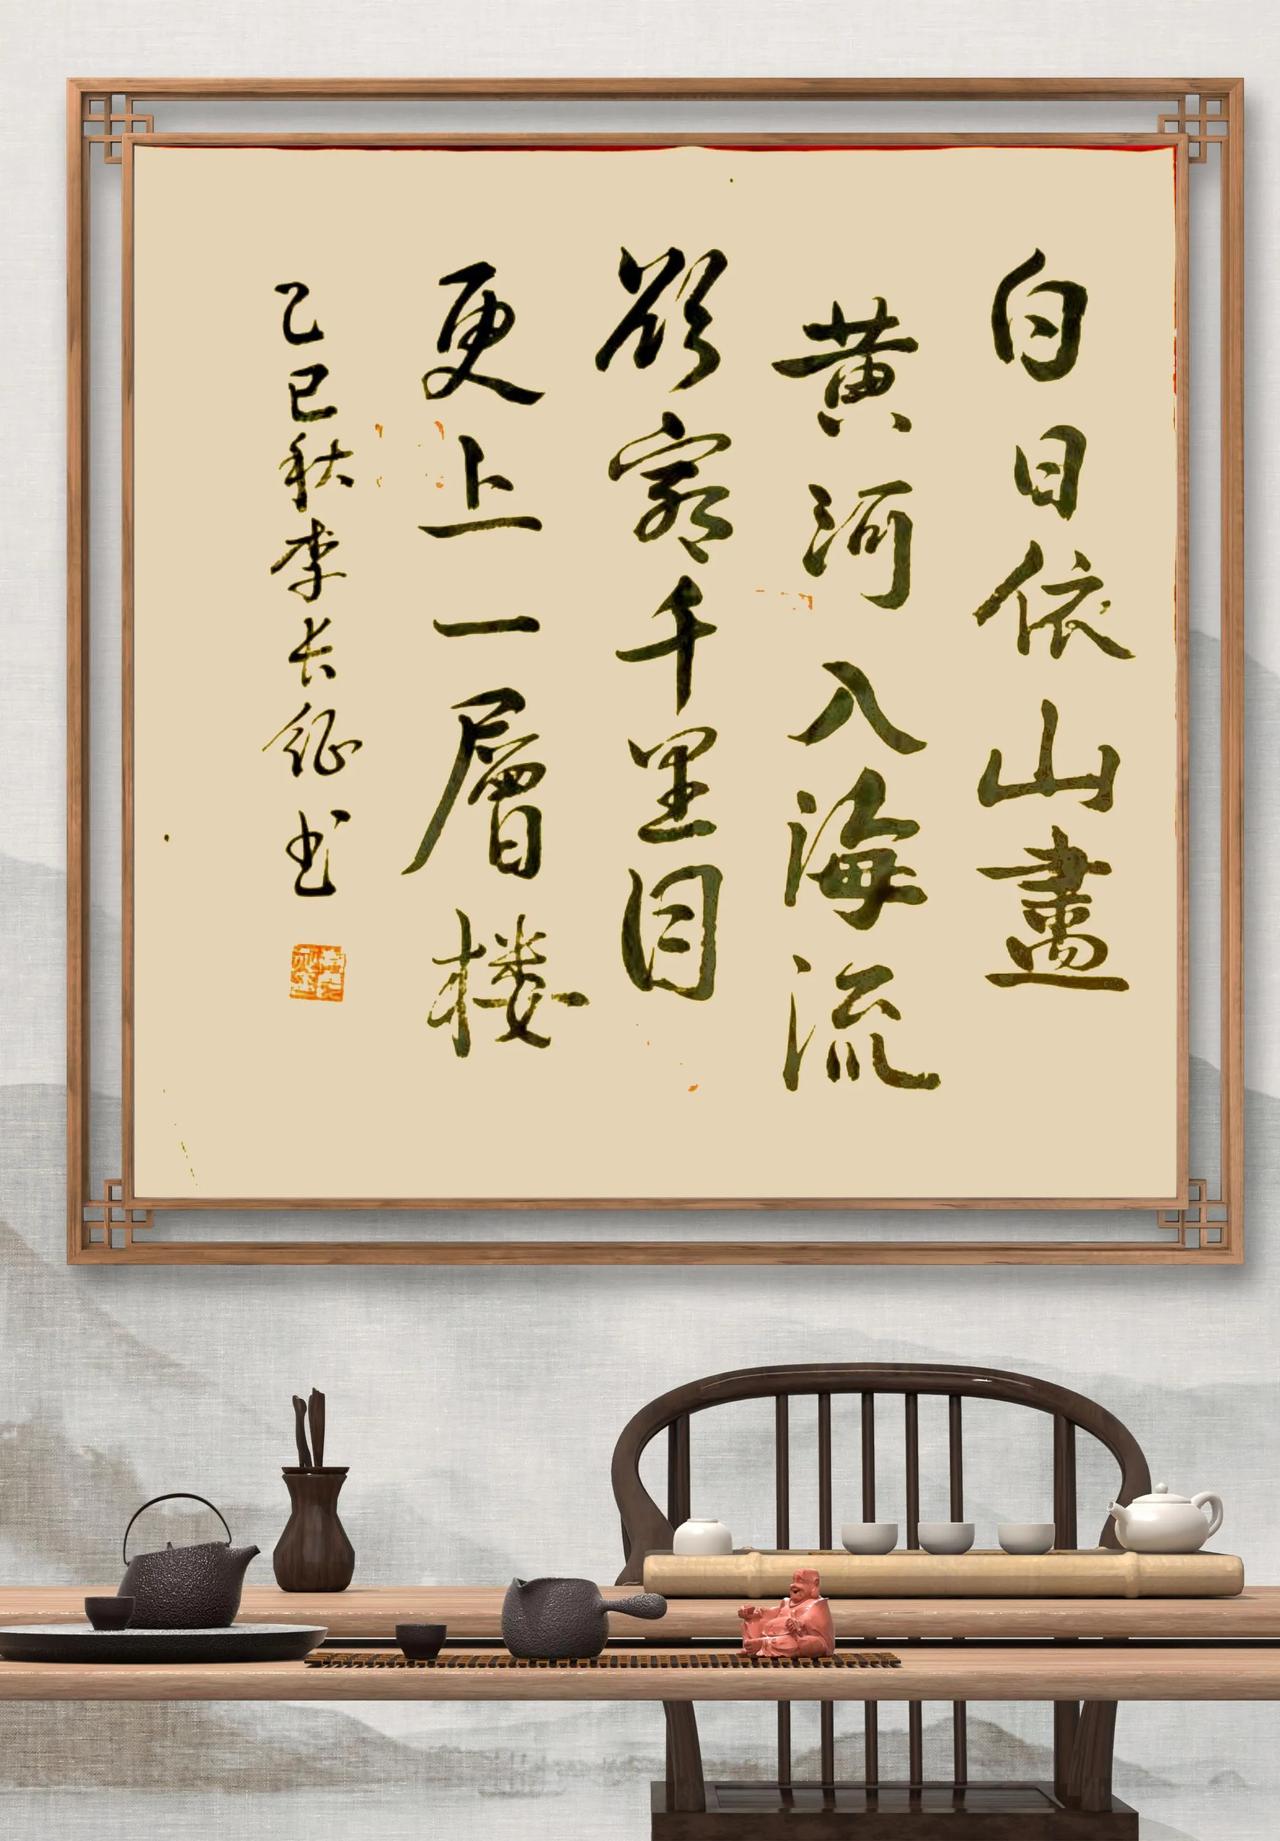 白日依山盡
黄河入海流
欲窮千里目
更上一層楼
乙巳秋李长征书